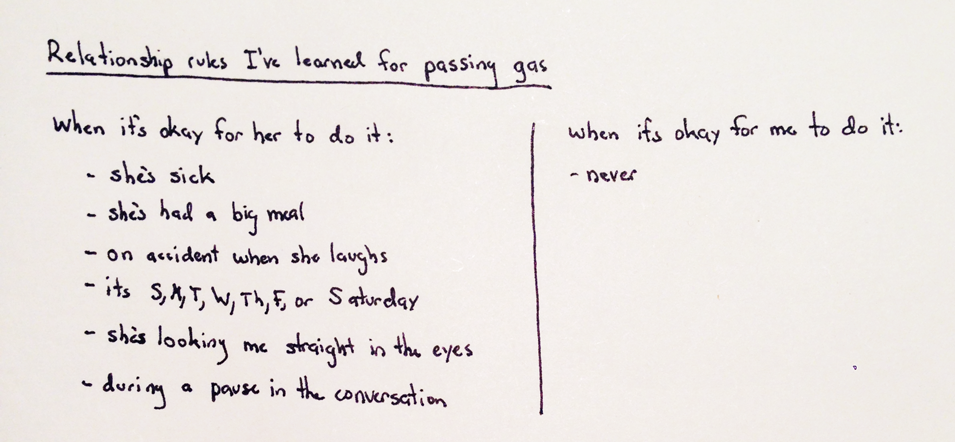 Relationship rules I've learned for passing gas
When it's okay for her to do it:
- she's sick
- she's had a big meal
- on accident when she laughs
- its S, M, T, W, Th, F, or Saturday
- she's looking me straight in the eyes
- during a pause in the conversation
when it's okay for me to do it:
- never